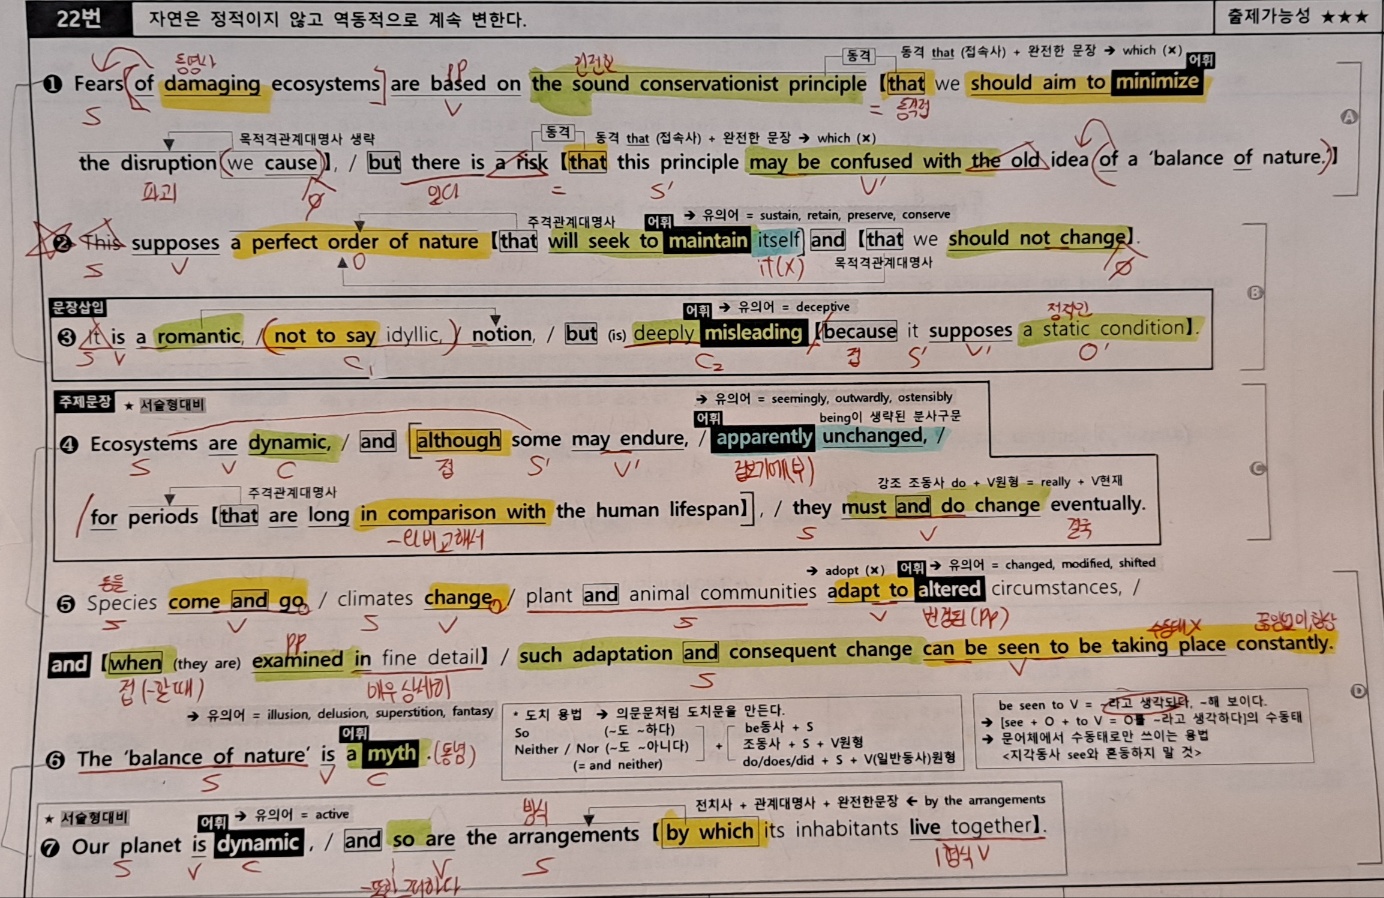 22번 자연은 정적이지 않고 역동적으로 계속 변한다. 출제가능성 ★★★
동격 동격 that (접속사) + 완전한 문장 → which (×)
동명사 pp 건전한 어휘
❶ Fears [of damaging ecosystems] are based on the sound conservationist principle 【that we should aim to minimize
S V = 동격 A
목적격관계대명사 생략 동격 동격 that (접속사) + 완전한 문장 → which (×)
the disruption (we cause)】, / but there is a risk 【that this principle may be confused with the old idea (of a ‘balance of nature.’)】
파괴 ∅ 있다 = S' V'
주격관계대명사 어휘 → 유의어 = sustain, retain, preserve, conserve
❷ This supposes a perfect order of nature 【that will seek to maintain itself】 and 【that we should not change】.
S V O it(X) 목적격관계대명사 ∅
B
문장삽입 어휘 → 유의어 = deceptive 정적인
❸ It is a romantic, / (not to say idyllic,) / notion, / but (is) deeply misleading 【because it supposes a static condition】.
S V C₁ C₂ 접 S' V' O'
주제문장 ★ 서술형대비 → 유의어 = seemingly, outwardly, ostensibly
어휘 being이 생략된 분사구문
❹ Ecosystems are dynamic, / and [although some may endure, / apparently unchanged, /
S V C 접 S' V' 겉보기에(부) C
주격관계대명사 강조 조동사 do + V원형 = really + V현재
for periods 【that are long in comparison with the human lifespan】], / they must and do change eventually.
~와 비교해서 S V 결국
동물 → adopt (×) 어휘 → 유의어 = changed, modified, shifted
❺ Species come and go, / climates change, / plant and animal communities adapt to altered circumstances, /
S V S V S V 변경된 (pp) 수동태X 끊임없이, 항상
pp
and 【when (they are) examined in fine detail】 / such adaptation and consequent change can be seen to be taking place constantly.
접 (~할 때) 매우 상세히 S V
D
→ 유의어 = illusion, delusion, superstition, fantasy
어휘
❻ The ‘balance of nature’ is a myth. (통념)
S V C
* 도치 용법 → 의문문처럼 도치문을 만든다.
So (~도 ~하다) be동사 + S
Neither / Nor (~도 ~아니다) + 조동사 + S + V원형
(= and neither) do/does/did + S + V(일반동사)원형
be seen to V = ~라고 생각되다, ~해 보이다.
→ [see + O + to V = O를 ~라고 생각하다]의 수동태
→ 문어체에서 수동태로만 쓰이는 용법
<지각동사 see와 혼동하지 말 것>
★ 서술형대비 어휘 → 유의어 = active 방식 전치사 + 관계대명사 + 완전한문장 ← by the arrangements
❼ Our planet is dynamic, / and so are the arrangements 【by which its inhabitants live together】.
S V C V S 1형식 V
~또한 그러하다